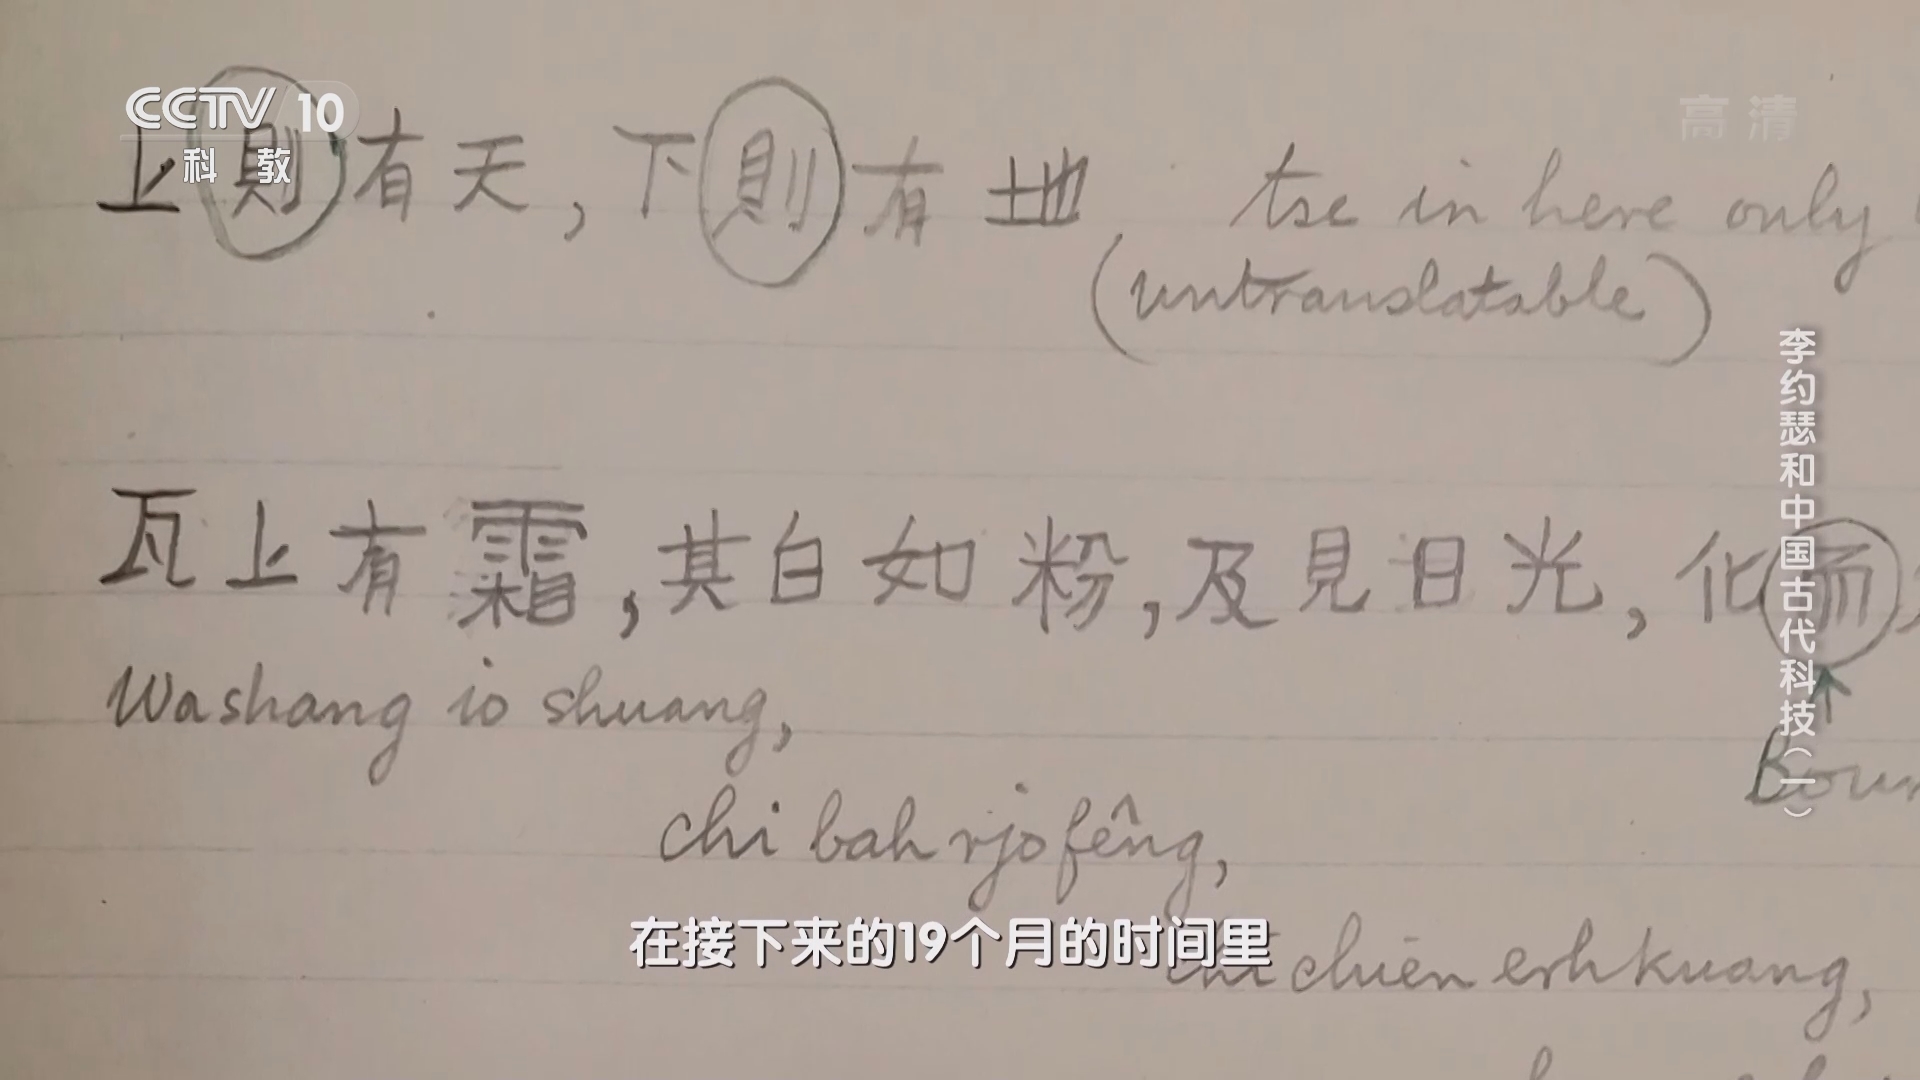 CCTV 10
科教
高清
上則有天，下則有地 tse in here only
(untranslatable)
李约瑟和中国古代科技（一）
瓦上有霜，其白如粉，及見日光，化而
Wa shang io shuang,
chi bah rjo fêng,
在接下来的19个月的时间里
chi chien erh kuang,